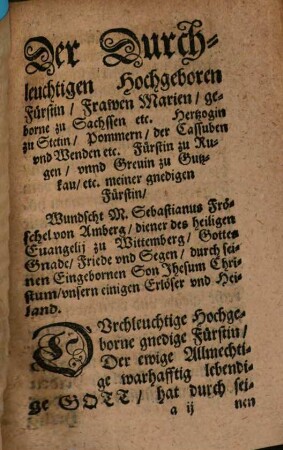 Der Durch-
leuchtigen Hochgeboren
Fürstin / Frawen Marien / ge-
borne zu Sachssen etc. Hertzogin
zu Stetin / Pommern / der Cassuben
vnd Wenden etc. Fürstin zu Ru-
gen / vnnd Greuin zu Gutz-
kau / etc. meiner gnedigen
Fürstin /
Wundscht M. Sebastianus Frö-
schel von Amberg / diener des heiligen
Euangelij zu Wittemberg / Gottes
Gnade / Friede vnd Segen / durch sei-
nen Eingebornen Son Jhesum Chri-
stum / vnsern einigen Erlöser vnd Hei-
land.
DVrchleuchtige Hochge-
borne gnedige Fürstin /
Der ewige Allmechti-
ge warhafftig lebendi-
ge GOTT / hat durch sei-
a ij nen